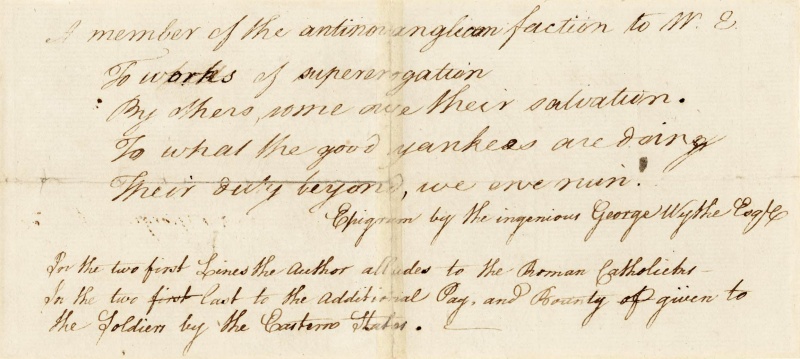 A member of the antinovanglican faction to W. E.
To works of supererogation
By others, some owe their salvation.
To what the good yankees are doing
Their duty beyond, we owe ruin.
Epigram by the ingenious George Wythe Esq/c
In the two first Lines the Author alludes to the Roman Catholicks–
In the two first last to the additional Pay, and Bounty of given to
the Soldiers by the Eastern States.